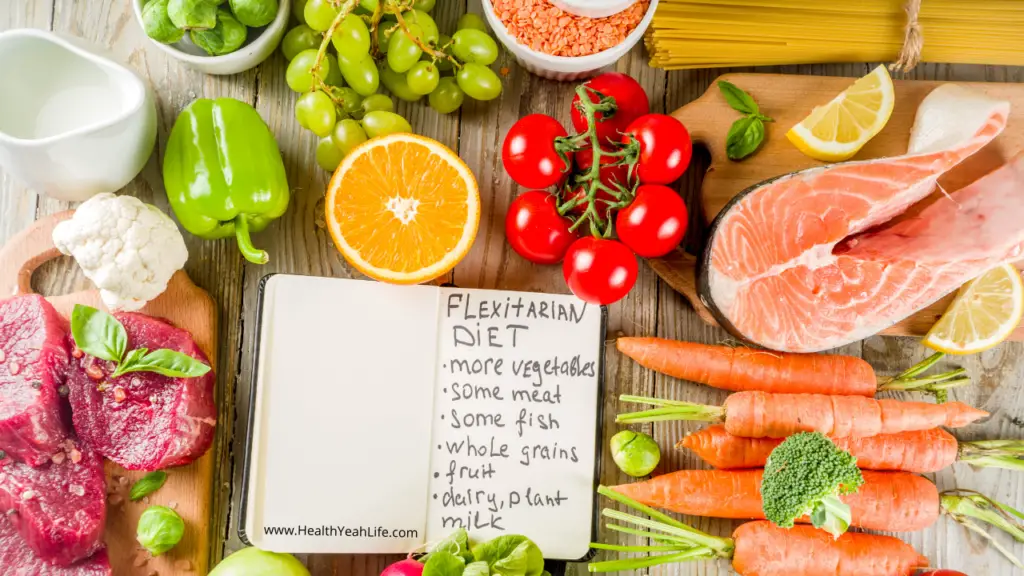 FLEXITARIAN
DIET
· more vegetables
· some meat
· some fish
· whole grains
· fruit
· dairy, plant
milk
www.HealthYeahLife.com